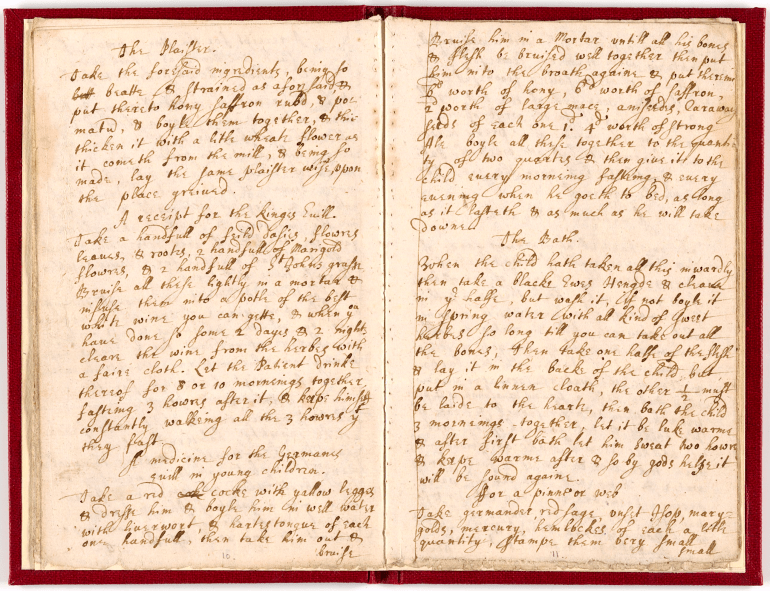 The Plaister.
Take the foresaid ingredients being so
beatte & strained as aforesaid &
put thereto hony saffron rubd, & po=
matu, & boyle them together, & then
thicken it with a litle wheate flower as
it cometh from the mill, & being so
made, lay the same plaister wise, upon
the place greived.
A receipt for the Kinges Evill.
Take a handfull of feild dasies, flowres
leaves, & rootes, 2 handfull of Marigold
flowres, & 2 handfull of St Johns grasse
Bruise all these lightly in a mortar &
infuse them into a potle of the best
white wine you can gette, & when you
have done so some 2 dayes & 2 nights
cleare the wine from the herbes with
a faire cloth. Let the Patient drinke
thereof for 8 or 10 mornengs together
fasteing 3 howres after it, & keepe himself
constantly walking all the 3 howres yt
they fast
A medicine for the Germanes
Evill in young children.
Take a red cocke with yellow legges
& dresse him & boyle him in well water
with liverwort, & hartestongue of each
one handfull, then take him out &
bruise
10
Bruise him in a Mortar untill all his bones
& flesh be bruised well together then put
him into the broath againe & put therein
6d worth of hony, 6d worth of saffron,
2 worth of large mace, aniseeds, Caraway
seeds of each one 1d. 4d worth of strong
Ale boyle all these together to the quanti=
ty of two quartes & then give itt to the
child every morneing fasteing, & every
evening when he goeth to bed, as long
as it lasteth & as much as he will take
downe.
The Bath.
When the child hath taken all this inwardly
then take a blacke Ewes Hengde & cleave
in ye halfe, but wash it, if not boyle it
in spring water with all kind of sweet
herbes so long till you can take out all
the bones, Then take one halfe of the flesh
& lay it in the backe of the child, but
put in a linnen cloath, the other 1/2 must
be laide to the hearte, then bath the child
3 mornengs together, let it be luke warme
& after first bath let him sweat two howre
& keepe warme after & so by gods helpe it
will be sound againe.
For a pinne or web
Take germander, red sage unset Isop, mary=
golds, mercury, hemlockes of each a litle
quantity, stampe them very small
small
11